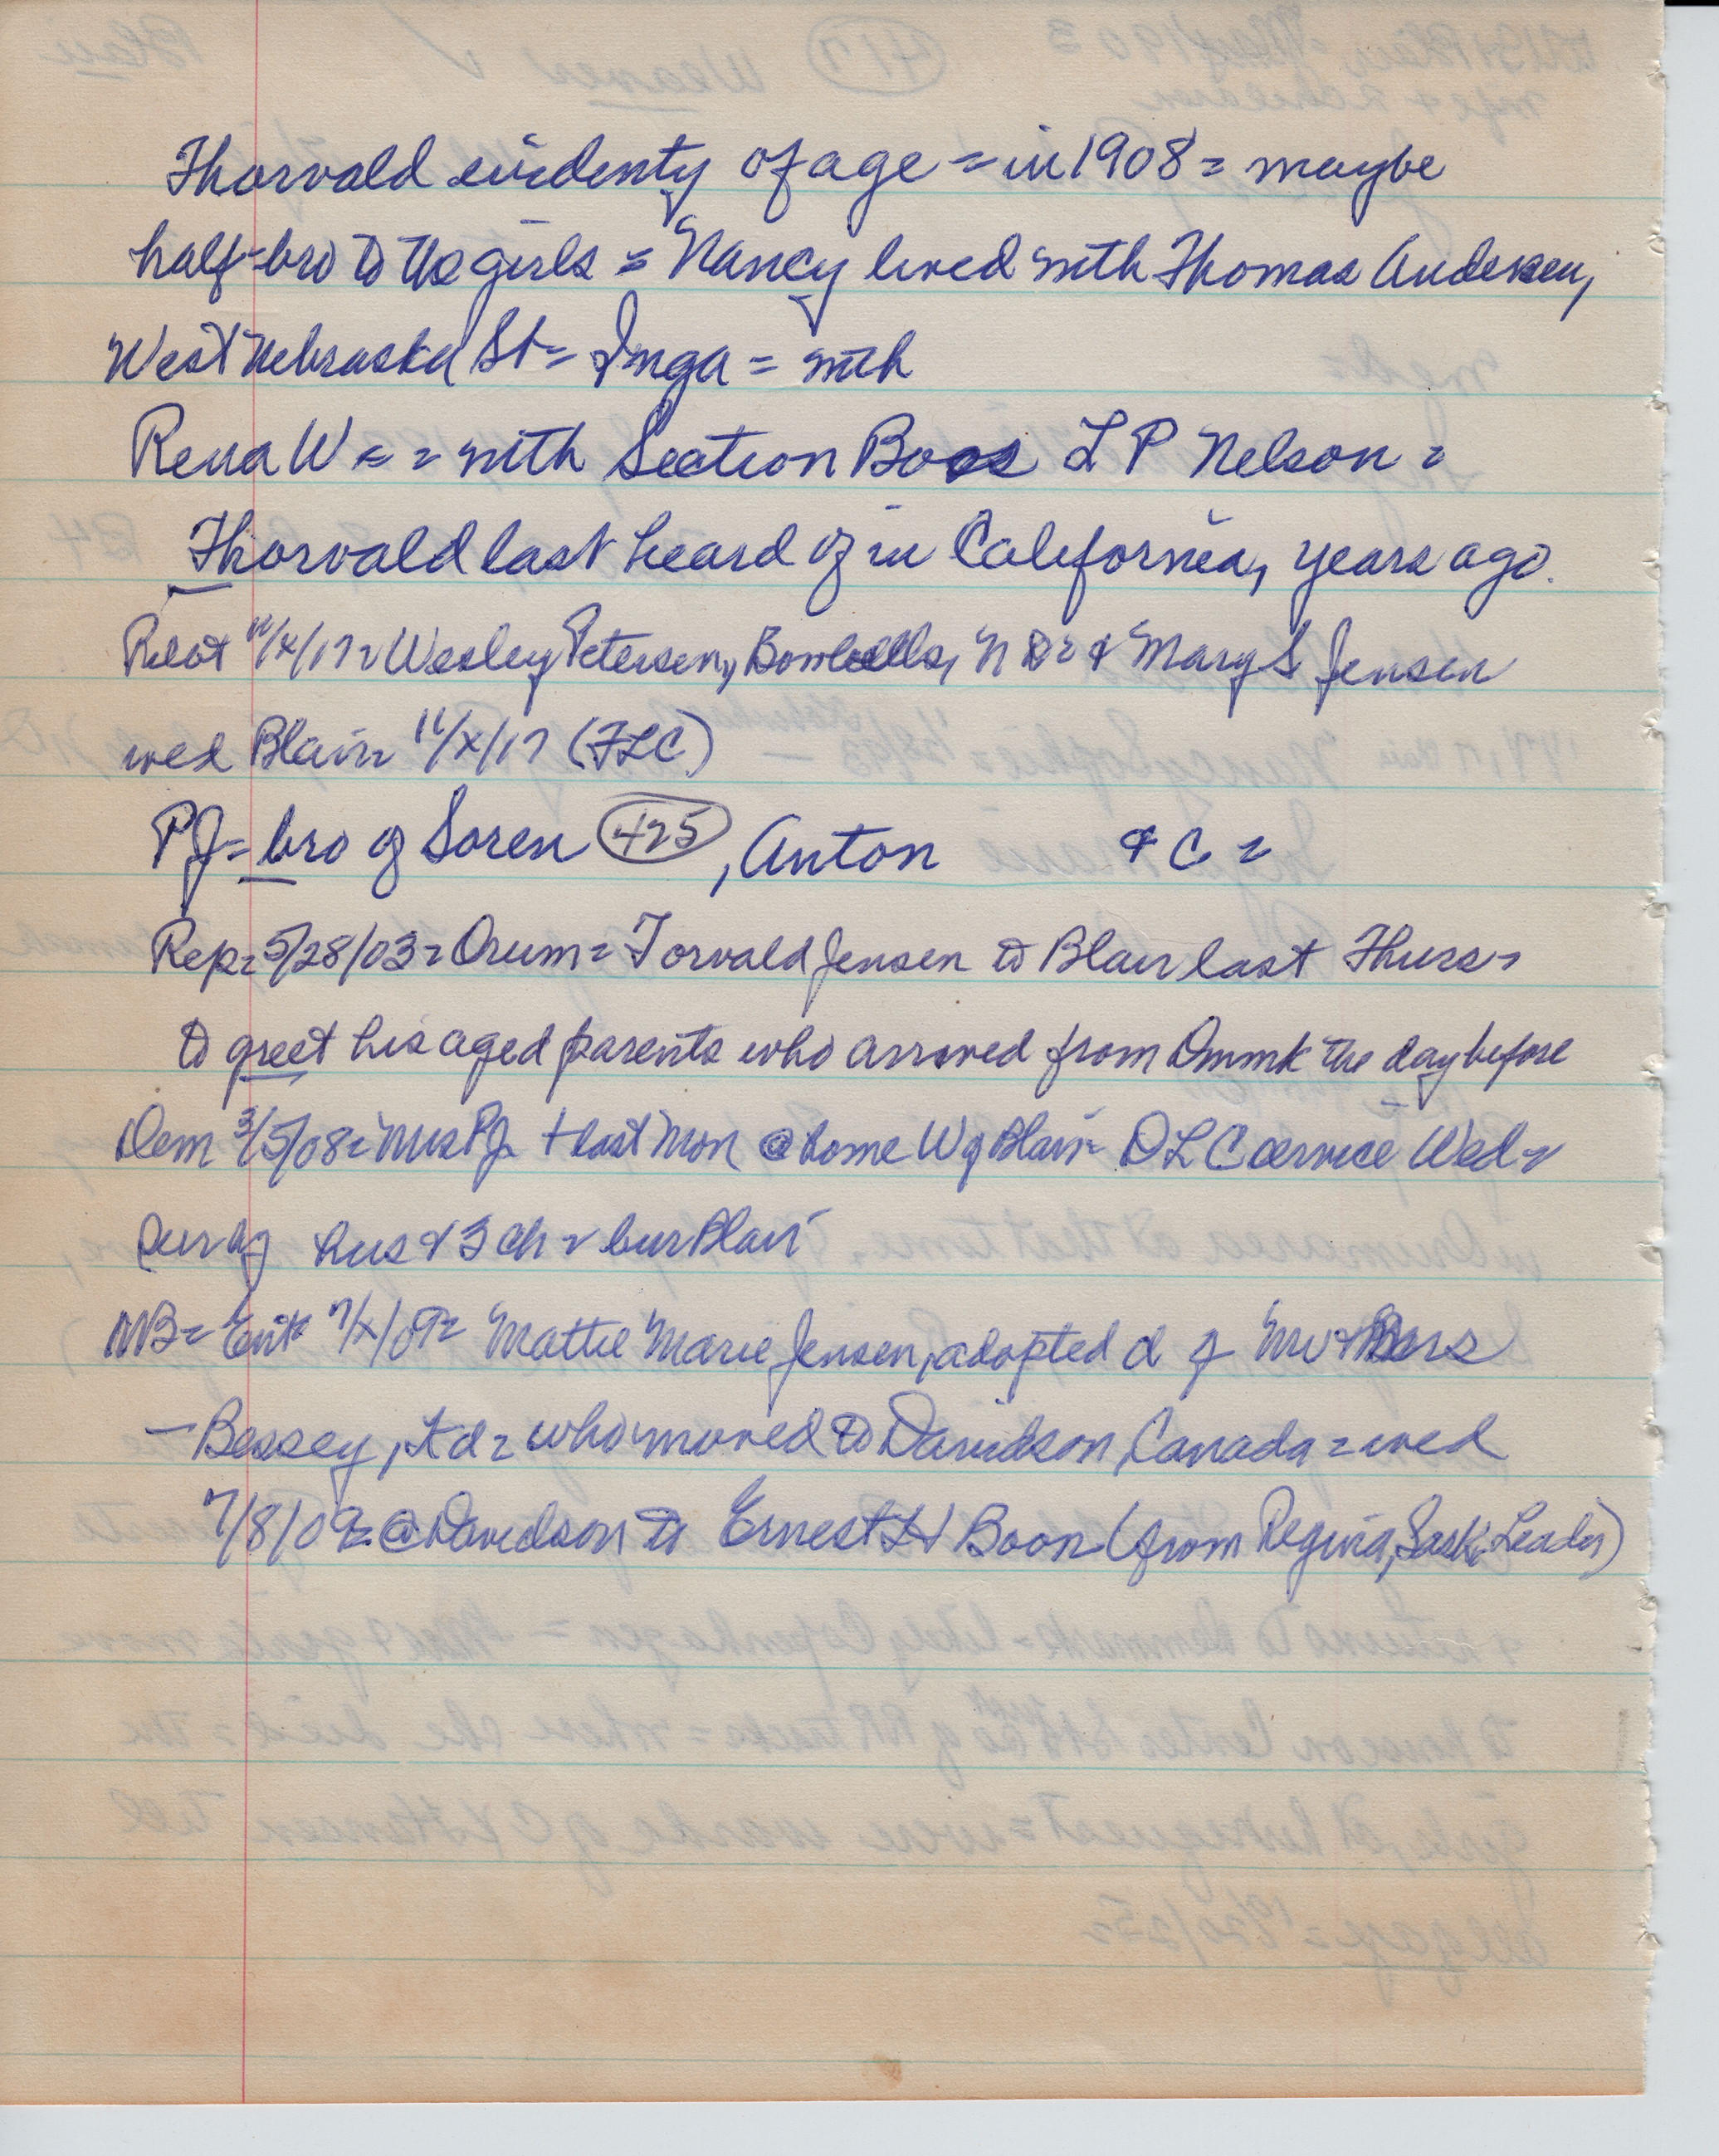 Thorvald evidenty of age = in 1908 = maybe
half-bro to the girls = Nancy lived with Thomas Andersen,
West Nebraska St = Inga = with
Rena W = = with Section Boss L P Nelson =
Thorvald last heard of in California, years ago.
11/x/17 = Wesley Petersen, Bowbells, N D = & Mary S Jensen
wed Blair = 11/x/17 (FLC)
PJ = bro of Soren 425, Anton & C =
Rep = 5/28/03 = Orum = Torvald Jensen to Blair last Thurs =
to greet his aged parents who arrived from Dnmk the day before
Dem 3/5/08 = Mrs PJ + last Mon @ home W of Blair = DLC service Wed =
surv by hus & 3 ch = bur Blair
NB = Ent 7/x/09 = Mattie Marie Jensen, adopted d of Mr & Mrs
— Bessey, Kd = who moved to Davidson, Canada = wed
7/8/09 = @ Davidson to Ernest H Boon (from Regina, Sask, Leader)